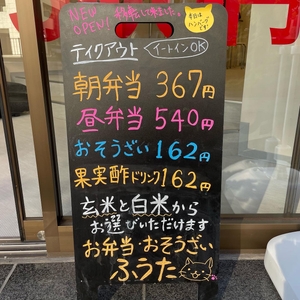 NEW OPEN! 移転して来ました。
テイクアウト イートインOK
朝弁当 367円
昼弁当 540円
おそうざい 162円
果実酢ドリンク 162円
玄米と白米から
お選びいただけます
お弁当・おそうざい
ふうた